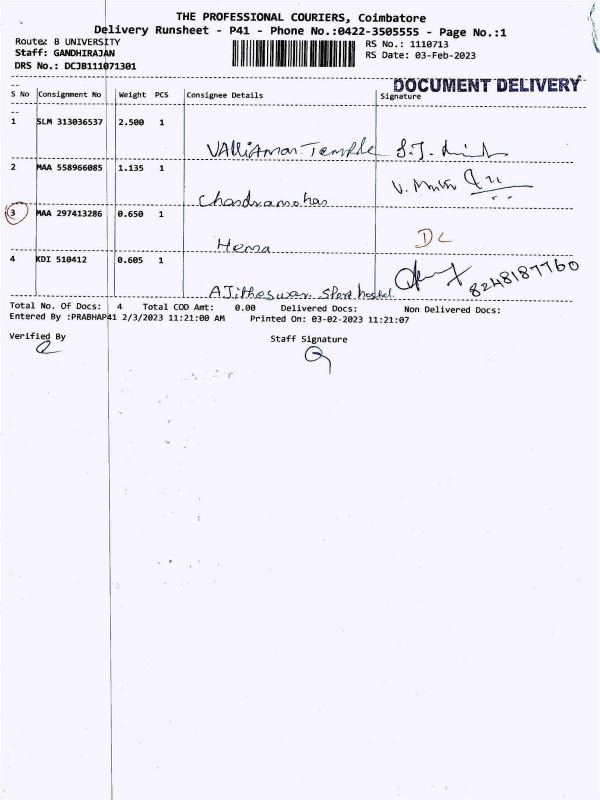 THE PROFESSIONAL COURIERS, Coimbatore
Delivery Runsheet - P41 - Phone No.:0422-3505555 - Page No.:1
Route: B UNIVERSITY
RS No.: 1110713
Staff: GANDHIRAJAN
RS Date: 03-Feb-2023
DRS No.: DCJB111071301
DOCUMENT DELIVERY
S No Consignment No Weight PCS Consignee Details Signature
1 SLM 313036537 2.500 1
VAlliAman Temple
2 MAA 558966085 1.135 1
Chandramohan
3 MAA 297413286 0.650 1
Hema DL
4 KDI 510412 0.605 1
8248187760
AJitheswar Sport hostel
Total No. Of Docs: 4 Total COD Amt: 0.00 Delivered Docs: Non Delivered Docs:
Entered By :PRABHAP41 2/3/2023 11:21:00 AM Printed On: 03-02-2023 11:21:07
Verified By
Staff Signature